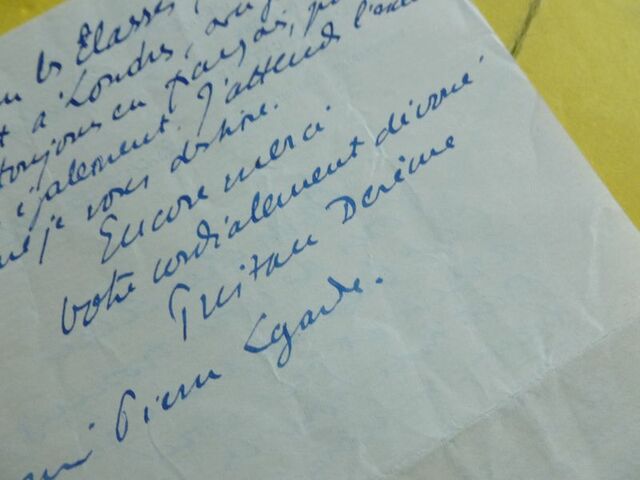 les Classes,
à Londres, 
toujours en français,
également. J'attends
je vous destine.
Encore merci
votre cordialement dévoué.
Tristan Derème
Pierre Lagarde.